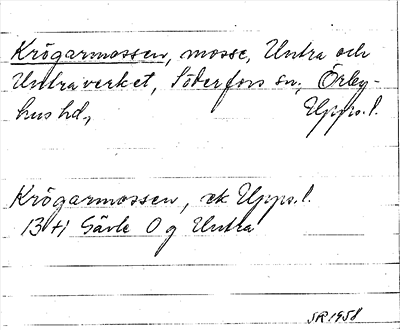 Krögarmossen, mosse, Untra och
Untraverket, Söderfors sn, Örby-
hus hd, Upps. l.
Krögarmossen, ek Upps. l.
13 ti Gävle O g Untra
SR 1958